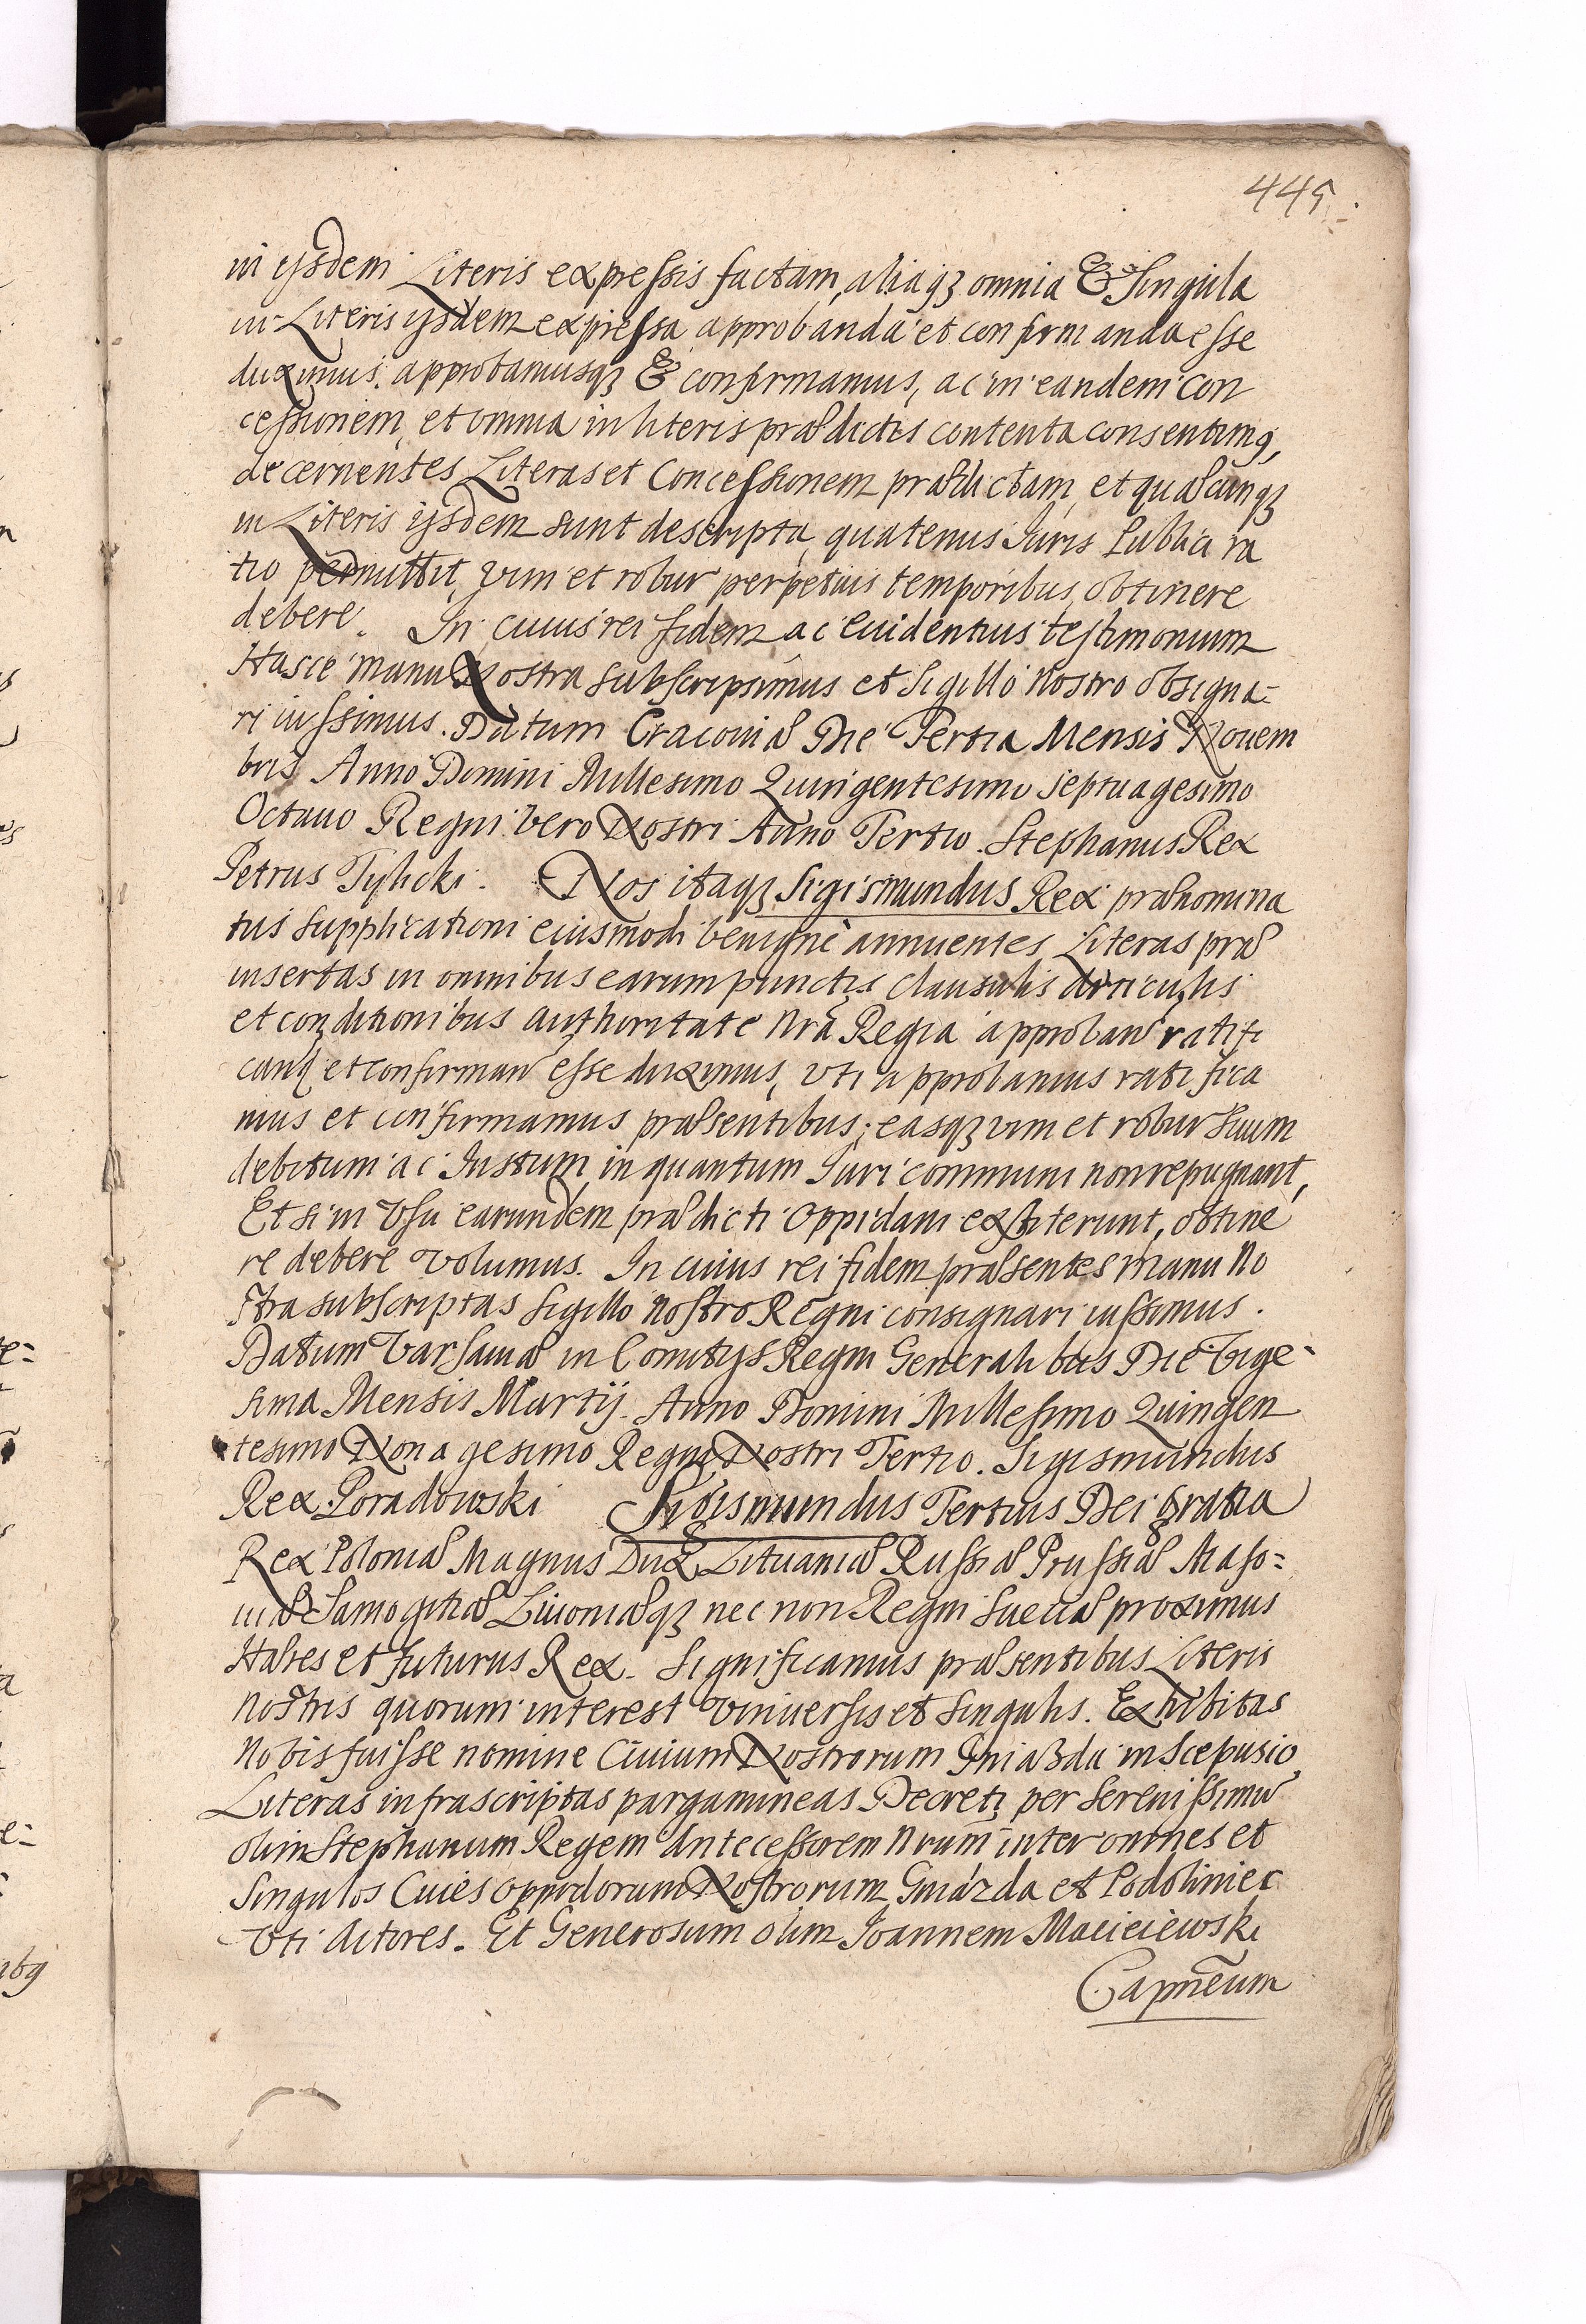 445.
in ijsdem Literis expressis factam, aliaqз omnia & Singula
in Literis ijsdem expressa approbanda et confirmanda esse
duximus. approbamusqз & confirmamus, ac in eandem con
cessionem, et omnia in literis prædictis contenta consentimꝯ,
decernentes Literas et Concessionem prædictam, et quæcunqз
in Literis ijsdem sunt descripta, quatenus Iuris Publici ra
tio permittit, vim et robur perpetuis temporibus, obtinere
debere. In cuius rei fidem ac euidentius testimonium
Hasce manu Nostra subscripsimus et Sigillo Nostro obsigna-
ri iussimus. Datum Cracouiæ Die Tertia Mensis Nouem
bris Anno Domini Millesimo Quingentesimo Septuagesimo
Octauo Regni vero Nostri Anno Tertio. Stephanus Rex
Petrus Tylicki. Nos itaqз Sigismundus Rex prænomina
tus supplicationi eiusmodi benignè annuentes, Literas præ
insertas in omnibus earum punctis clausulis articulis
et conditionibus authoritate nr̃a Regia approban̄ ratifi
can̄qз et confirman̄ esse duximus, vti approbamus ratifica
mus et confirmamus præsentibus; easqз vim et robur suum
debitum ac Iustum, in quantum Iuri communi non repugnant,
Et si in vsu earundem prædicti Oppidani exstiterunt, obtine
re debere volumus. In cuius rei fidem præsentes manu No
stra subscriptas Sigillo Nostro Regni consignari iussimus.
Datum Varsauiæ in Comitijs Regni Generalibus Die Vige-
sima Mensis Martij. Anno Domini Millesimo Quingen
tesimo Nonagesimo Regni Nostri Tertio. Sigismundus
Rex. Poradowski Sigismundus Tertius Dei Gratia
Rex Poloniæ Magnus Dux Lituaniæ Russiæ Prussiæ Maso=
uiæ Samogitiæ Liuoniæqз nec non Regni Sueciæ proximus
Hæres et futurus Rex. Significamus præsentibus Literis
Nostris quorum interest vniuersis et singulis. Exhibitas
Nobis fuisse nomine Ciuium Nostrorum Gniazda in Scepusio,
Literas infrascriptas pargamineas Decreti, per Serenissimū
olim Stephanum Regem Antecessorem Nrum̄ inter omnes et
Singulos Ciues oppidorum Nostrorum Gniazda et Podoliniec
Vti Actores. Et Generosum olim Ioannem Macieiewski
Capnēum